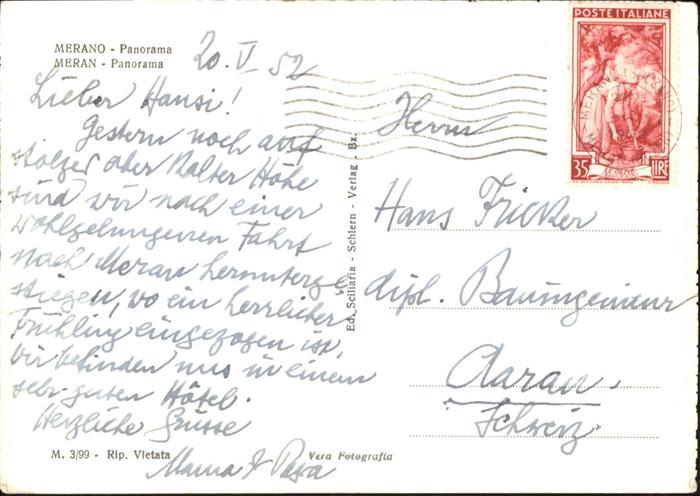 MERANO - Panorama
MERAN - Panorama
20. V 52
Lieber Hansi!
Gestern noch auf
stolzer aber kalter Höhe
sind wir nach einer
wohlgelungenen Fahrt
nach Meran herunterge-
stiegen, wo ein herrlicher
Frühling eingezogen ist.
Wir befinden uns in einem
sehr guten Hôtel.
Herzliche Grüsse
Mama & Papa
M. 3/99 - Rip. Vietata
Vera Fotografia
Ed. Sciliaria - Schlern - Verlag - Bz.
POSTE ITALIANE
35 LIRE
MERANO
Herrn
Hans Fricker
dipl. Bauingenieur
Aarau
Schweiz